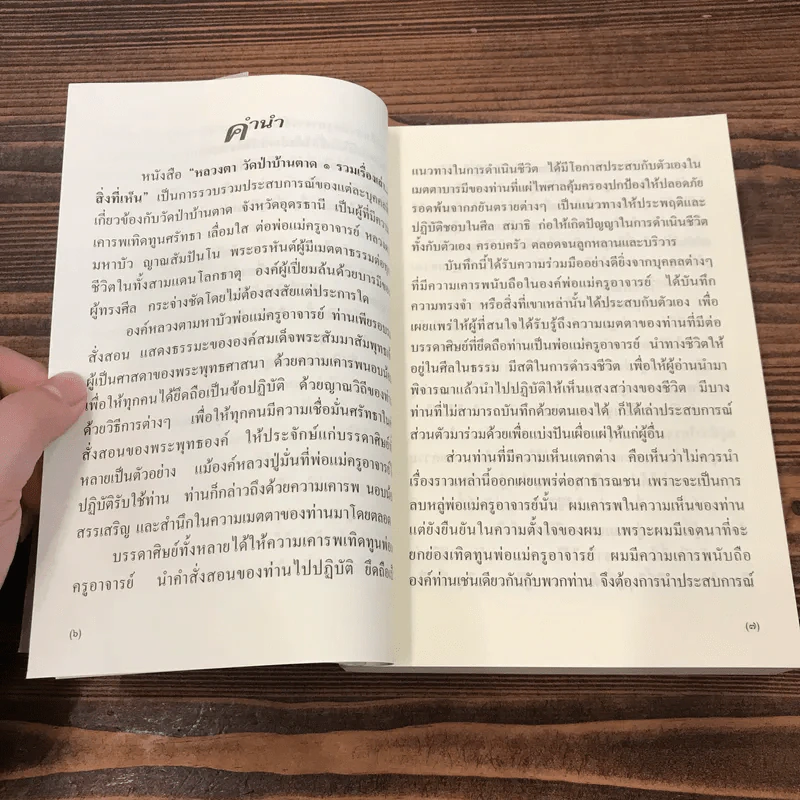 คำนำ
หนังสือ "หลวงตา วัดป่าบ้านตาด ๑ รวมเรื่องเล่า
สิ่งที่เห็น" เป็นการรวบรวมประสบการณ์ของแต่ละบุคคล
เกี่ยวข้องกับวัดป่าบ้านตาด จังหวัดอุดรธานี เป็นผู้ที่มีความ
เคารพเทิดทูนศรัทธา เลื่อมใส ต่อพ่อแม่ครูอาจารย์ หลวงตา
มหาบัว ญาณสัมปันโน พระอรหันต์ผู้มีเมตตาธรรมต่อ
ชีวิตในทั้งสามแดนโลกธาตุ องค์ผู้เปี่ยมล้นด้วยบารมีของ
ผู้ทรงศีล กระจ่างชัดโดยไม่ต้องสงสัยแต่ประการใด
องค์หลวงตามหาบัวพ่อแม่ครูอาจารย์ ท่านเพียรอบรม
สั่งสอน แสดงธรรมะขององค์สมเด็จพระสัมมาสัมพุทธเจ้า
ผู้เป็นศาสดาของพระพุทธศาสนา ด้วยความเคารพนอบน้อม
เพื่อให้ทุกคนได้ยึดถือเป็นข้อปฏิบัติ ด้วยญาณวิถีของท่าน
ด้วยวิธีการต่างๆ เพื่อให้ทุกคนมีความเชื่อมั่นศรัทธาใน
สั่งสอนของพระพุทธองค์ ให้ประจักษ์แก่บรรดาศิษย์
หลายเป็นตัวอย่าง แม้องค์หลวงปู่มั่นที่พ่อแม่ครูอาจารย์
ปฏิบัติรับใช้ท่าน ท่านก็กล่าวถึงด้วยความเคารพ นอบน้อม
สรรเสริญ และสำนึกในความเมตตาของท่านมาโดยตลอด
บรรดาศิษย์ทั้งหลายได้ให้ความเคารพเทิดทูนพ่อแม่
ครูอาจารย์ นำคำสั่งสอนของท่านไปปฏิบัติ ยึดถือ
(๖)
แนวทางในการดำเนินชีวิต ได้มีโอกาสประสบกับตัวเองใน
เมตตาบารมีของท่านที่แผ่ไพศาลคุ้มครองปกป้องให้ปลอดภัย
รอดพ้นจากภยันตรายต่างๆ เป็นแนวทางให้ประพฤติและ
ปฏิบัติชอบในศีล สมาธิ ก่อให้เกิดปัญญาในการดำเนินชีวิต
ทั้งกับตัวเอง ครอบครัว ตลอดจนลูกหลานและบริวาร
บันทึกนี้ได้รับความร่วมมืออย่างดียิ่งจากบุคคลต่างๆ
ที่มีความเคารพนับถือในองค์พ่อแม่ครูอาจารย์ ได้บันทึก
ความทรงจำ หรือสิ่งที่เขาเหล่านั้นได้ประสบกับตัวเอง เพื่อ
เผยแพร่ให้ผู้ที่สนใจได้รับรู้ถึงความเมตตาของท่านที่มีต่อ
บรรดาศิษย์ที่ยึดถือท่านเป็นพ่อแม่ครูอาจารย์ นำทางชีวิตให้
อยู่ในศีลในธรรม มีสติในการดำรงชีวิต เพื่อให้ผู้อ่านนำมา
พิจารณาแล้วนำไปปฏิบัติให้เห็นแสงสว่างของชีวิต มีบาง
ท่านที่ไม่สามารถบันทึกด้วยตนเองได้ ก็ได้เล่าประสบการณ์
ส่วนตัวมาร่วมด้วยเพื่อแบ่งปันเผื่อแผ่ให้แก่ผู้อื่น
ส่วนท่านที่มีความเห็นแตกต่าง คือเห็นว่าไม่ควรนำ
เรื่องราวเหล่านี้ออกเผยแพร่ต่อสาธารณชน เพราะจะเป็นการ
ลบหลู่พ่อแม่ครูอาจารย์นั้น ผมเคารพในความเห็นของท่าน
แต่ยังยืนยันในความตั้งใจของผม เพราะผมมีเจตนาที่จะ
ยกย่องเทิดทูนพ่อแม่ครูอาจารย์ ผมมีความเคารพนับถือ
องค์ท่านเช่นเดียวกันกับพวกท่าน จึงต้องการนำประสบการณ์
(๗)